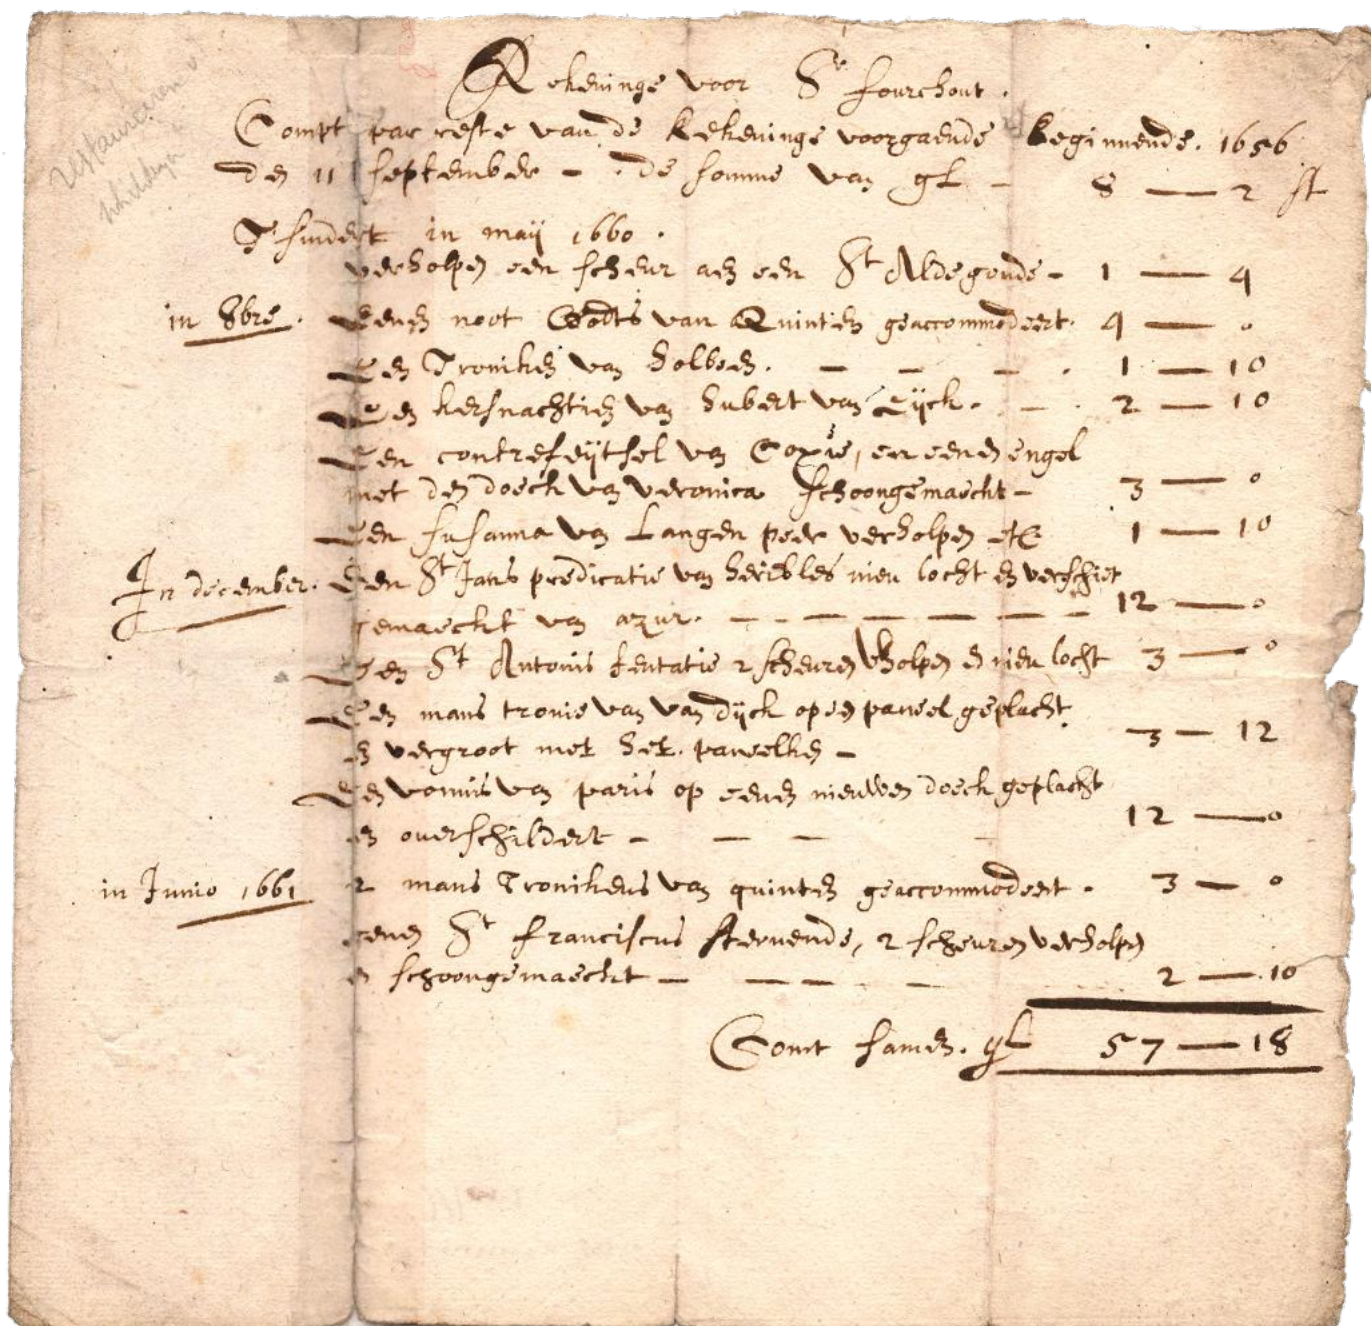 Rekeninge voor Sr fourchout.
Compt par reste van de Rekeninge voorgaende beginnende. 1656
den 11 september - . de somme van gl - 8 — 2 st
T'sindert in maij 1660.
verholpen een scheur aen een St Aldegonde - 1 — 4
in 8bre. Eenen noot Godts van Quinten geaccommodeert. 4 — 0
Een Troniken van holben. - - - . 1 — 10
Een kersnachtien van hubert van Eijck. - . 2 — 10
Een contrefeijtsel van Coxie, en eenen engel
met den doeck van veronica schoongemaeckt - 3 — 0
Een susanna van Langen peer verholpen etc 1 — 10
In december. Een St Jans predicatie van heribles nieu locht en verschiet
gemaeckt van azur. - - - - - - - 12 — 0
Een St Antonis tentatie 2 scheuren vholpen en nieu locht 3 — 0
Een mans tronie van van dijck op een paneel geplackt
en vergroot met het. paneelken - 3 — 12
Een vonnis van paris op eenen nieuwen doeck geplackt
en overschildert - - - 12 — 0
in Junio 1661 2 mans Tronikens van quinten geaccommodeert. 3 — 0
eenen St franciscus stervende, 2 scheuren verholpen
en schoongemaeckt - - - - 2 — 10
Comt samen. gl 57 — 18
restaureren v
schilderijen